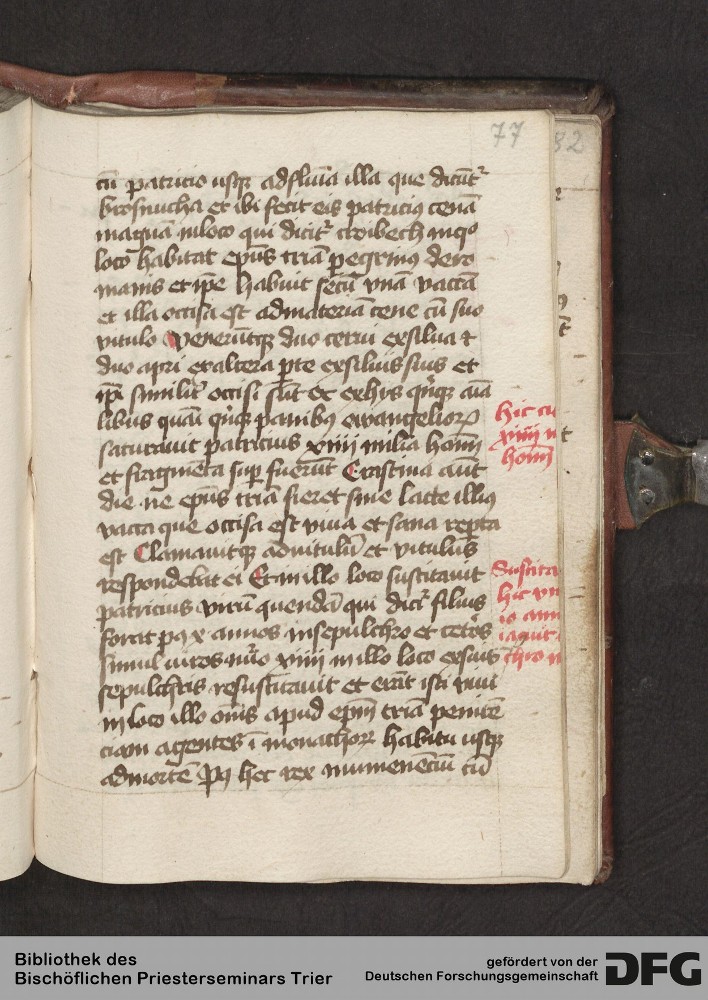 77
82
cū patricio usqꝫ adfluuia illa que dicūt᷑
brosnucha et ibi fecit eis patricius cenā
magnā inloco qui dicit᷑ croibech inqͦ
loco habitat ep̄us triā peregrinus dero
manis et ip̄e habuit secū vnā vaccā
et illa occisa est admateriā cene cū suo
vitulo Venerūtqꝫ duo cerui exsilua ⁊
duo apri exaltera ꝑte exsiluis suis et
ip̄i similit᷑ occisi sūt et exhys qͥnqꝫ aīa
libus quāi qͥnqꝫ panibꝰ ewangelioꝝ
saturauit patricius xviiij milia homī
et fragmēta sup̱ fuerūt Crastina aut̄
die ne ep̄us triā fieret sine lacte illiꝰ
vacca que occisa est viua et sana rep̱ta
est Clamauitqꝫ aduitulū et vitulus
respondebat ei Et in illo loco suscitauit
patricius virū quendā qui dicͬ filius
forat pꝰ x annos insepulchro et cet̄os
simul viros nūo xviiij in illo loco exsuis
sepulchris resuscitauit et erāt isti viui
in loco illo om̄s apud ep̄m triā penitē
ciam agentes ī monachoꝝ habitu usqꝫ
admortē Pꝰ hec rex mumenēciū cū
hic cu
xviiij m
homī
Suscita
hic vn
io ann
iacuit
chro
Bibliothek des
Bischöflichen Priesterseminars Trier
gefördert von der
Deutschen Forschungsgemeinschaft
DFG